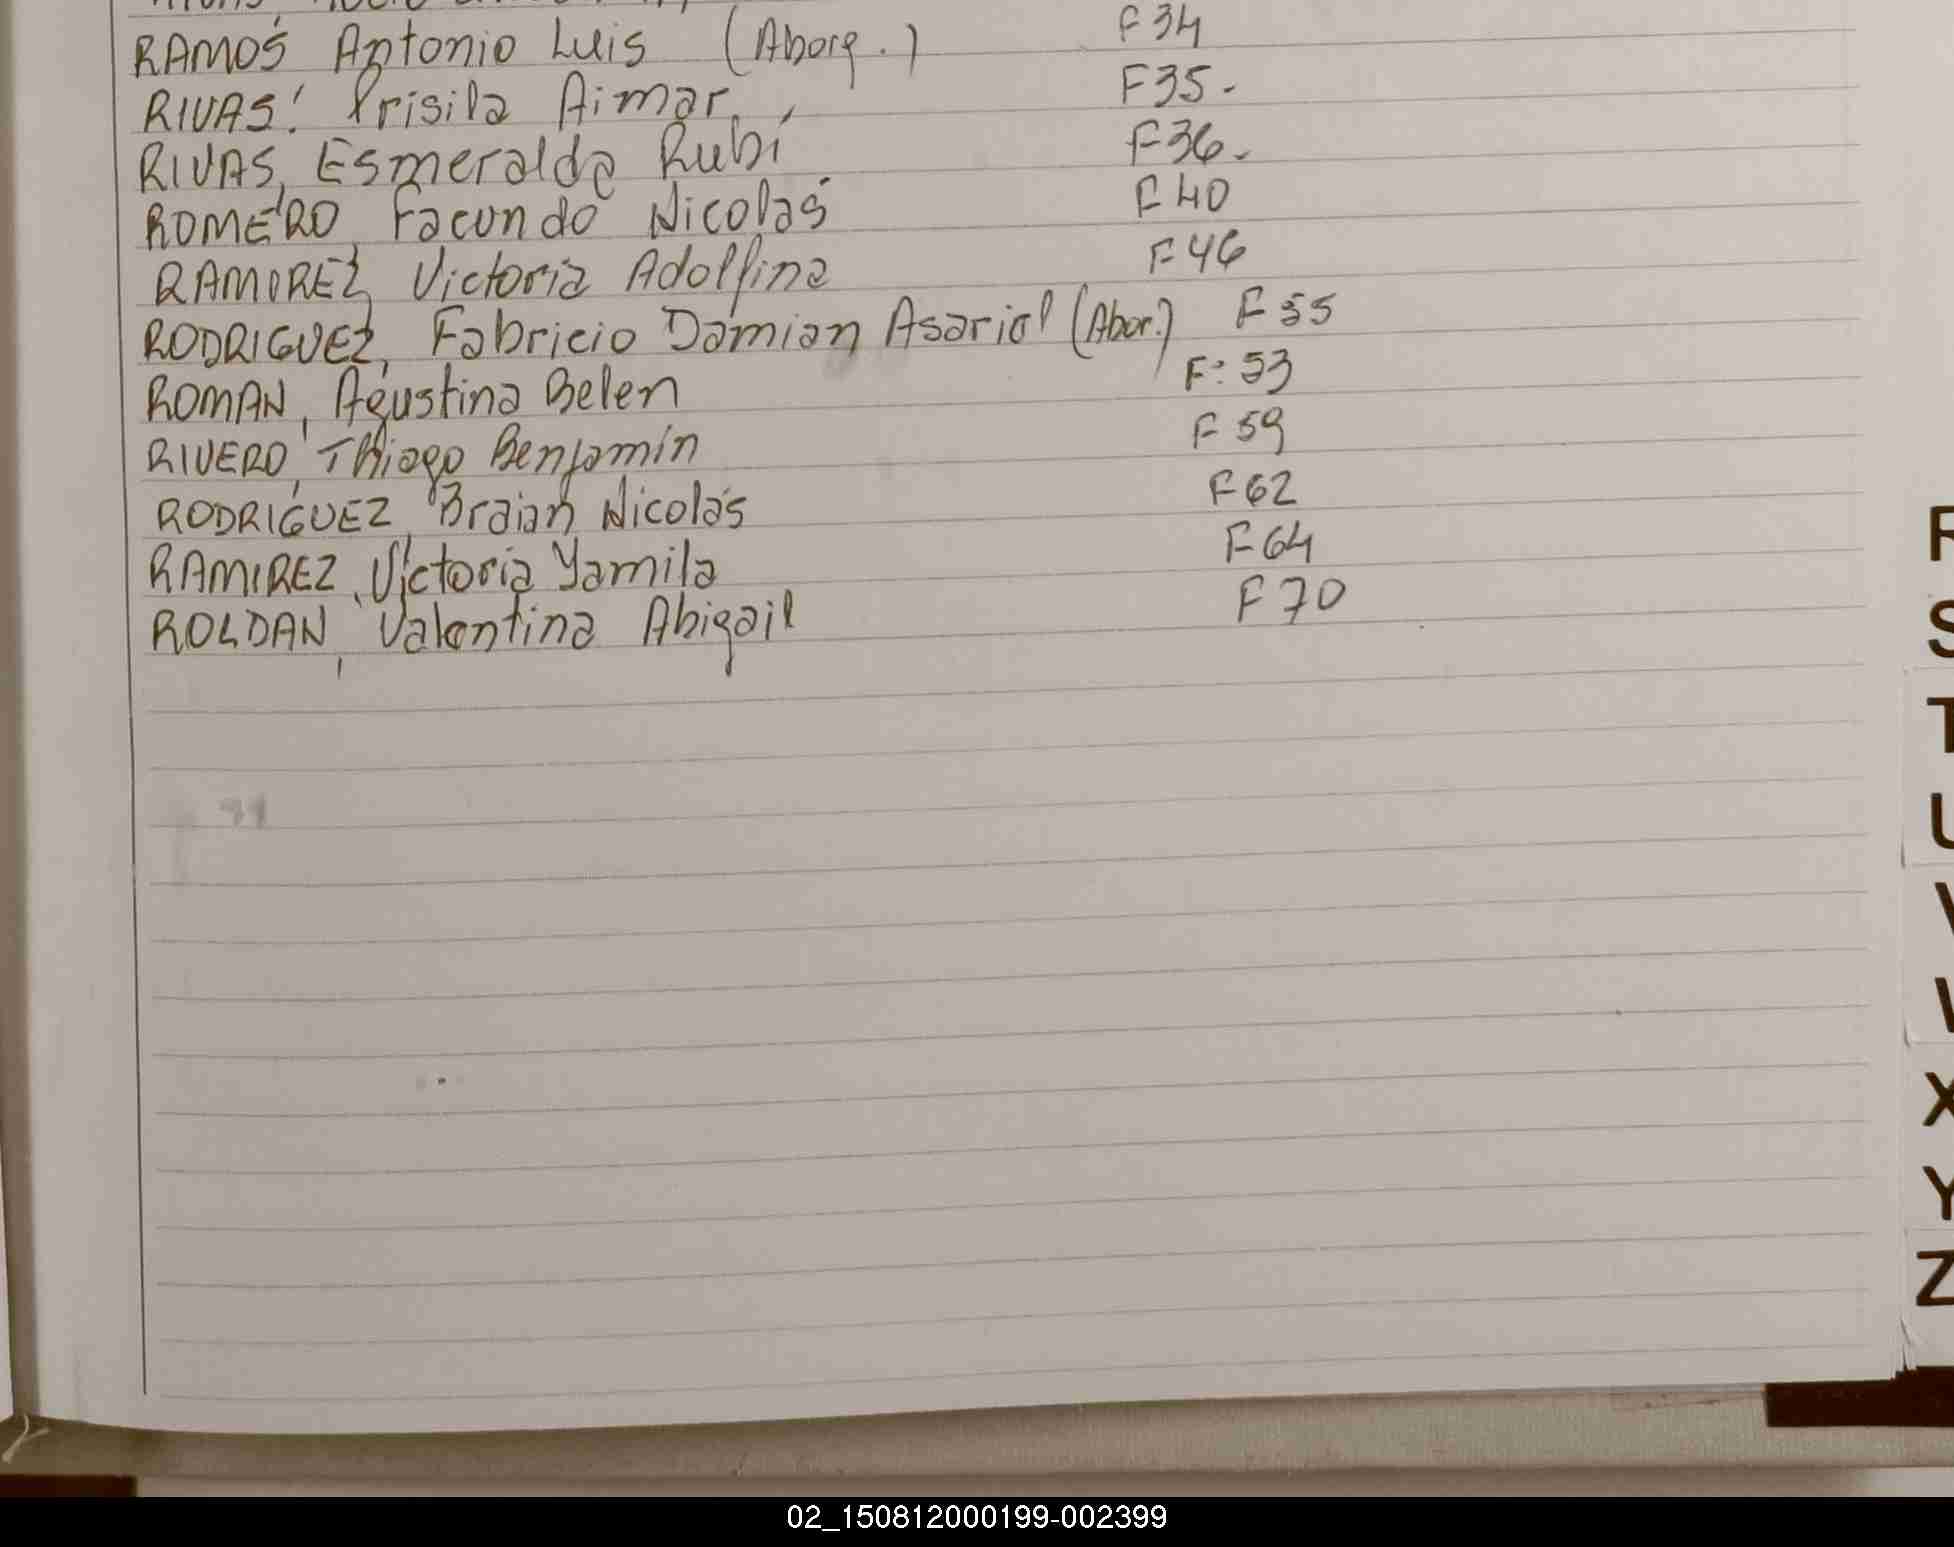 RAMOS Antonio Luis (Aborg.) F 34
RIVAS, Prisila Aimar F35.
RIVAS, Esmeralda Rubí F36.
ROMERO, Facundo Nicolás F 40
RAMIREZ, Victoria Adolfina F 46
RODRIGUEZ, Fabricio Damian Asariel (Abor.) F 55
ROMAN, Agustina Belen F: 53
RIVERO, Thiago Benjamín F 59
RODRÍGUEZ, Braian Nicolás F 62
RAMIREZ, Victoria Yamila F 64
ROLDAN, Valentina Abigail F 70
R
S
T
U
V
X
Y
Z
02_150812000199-002399